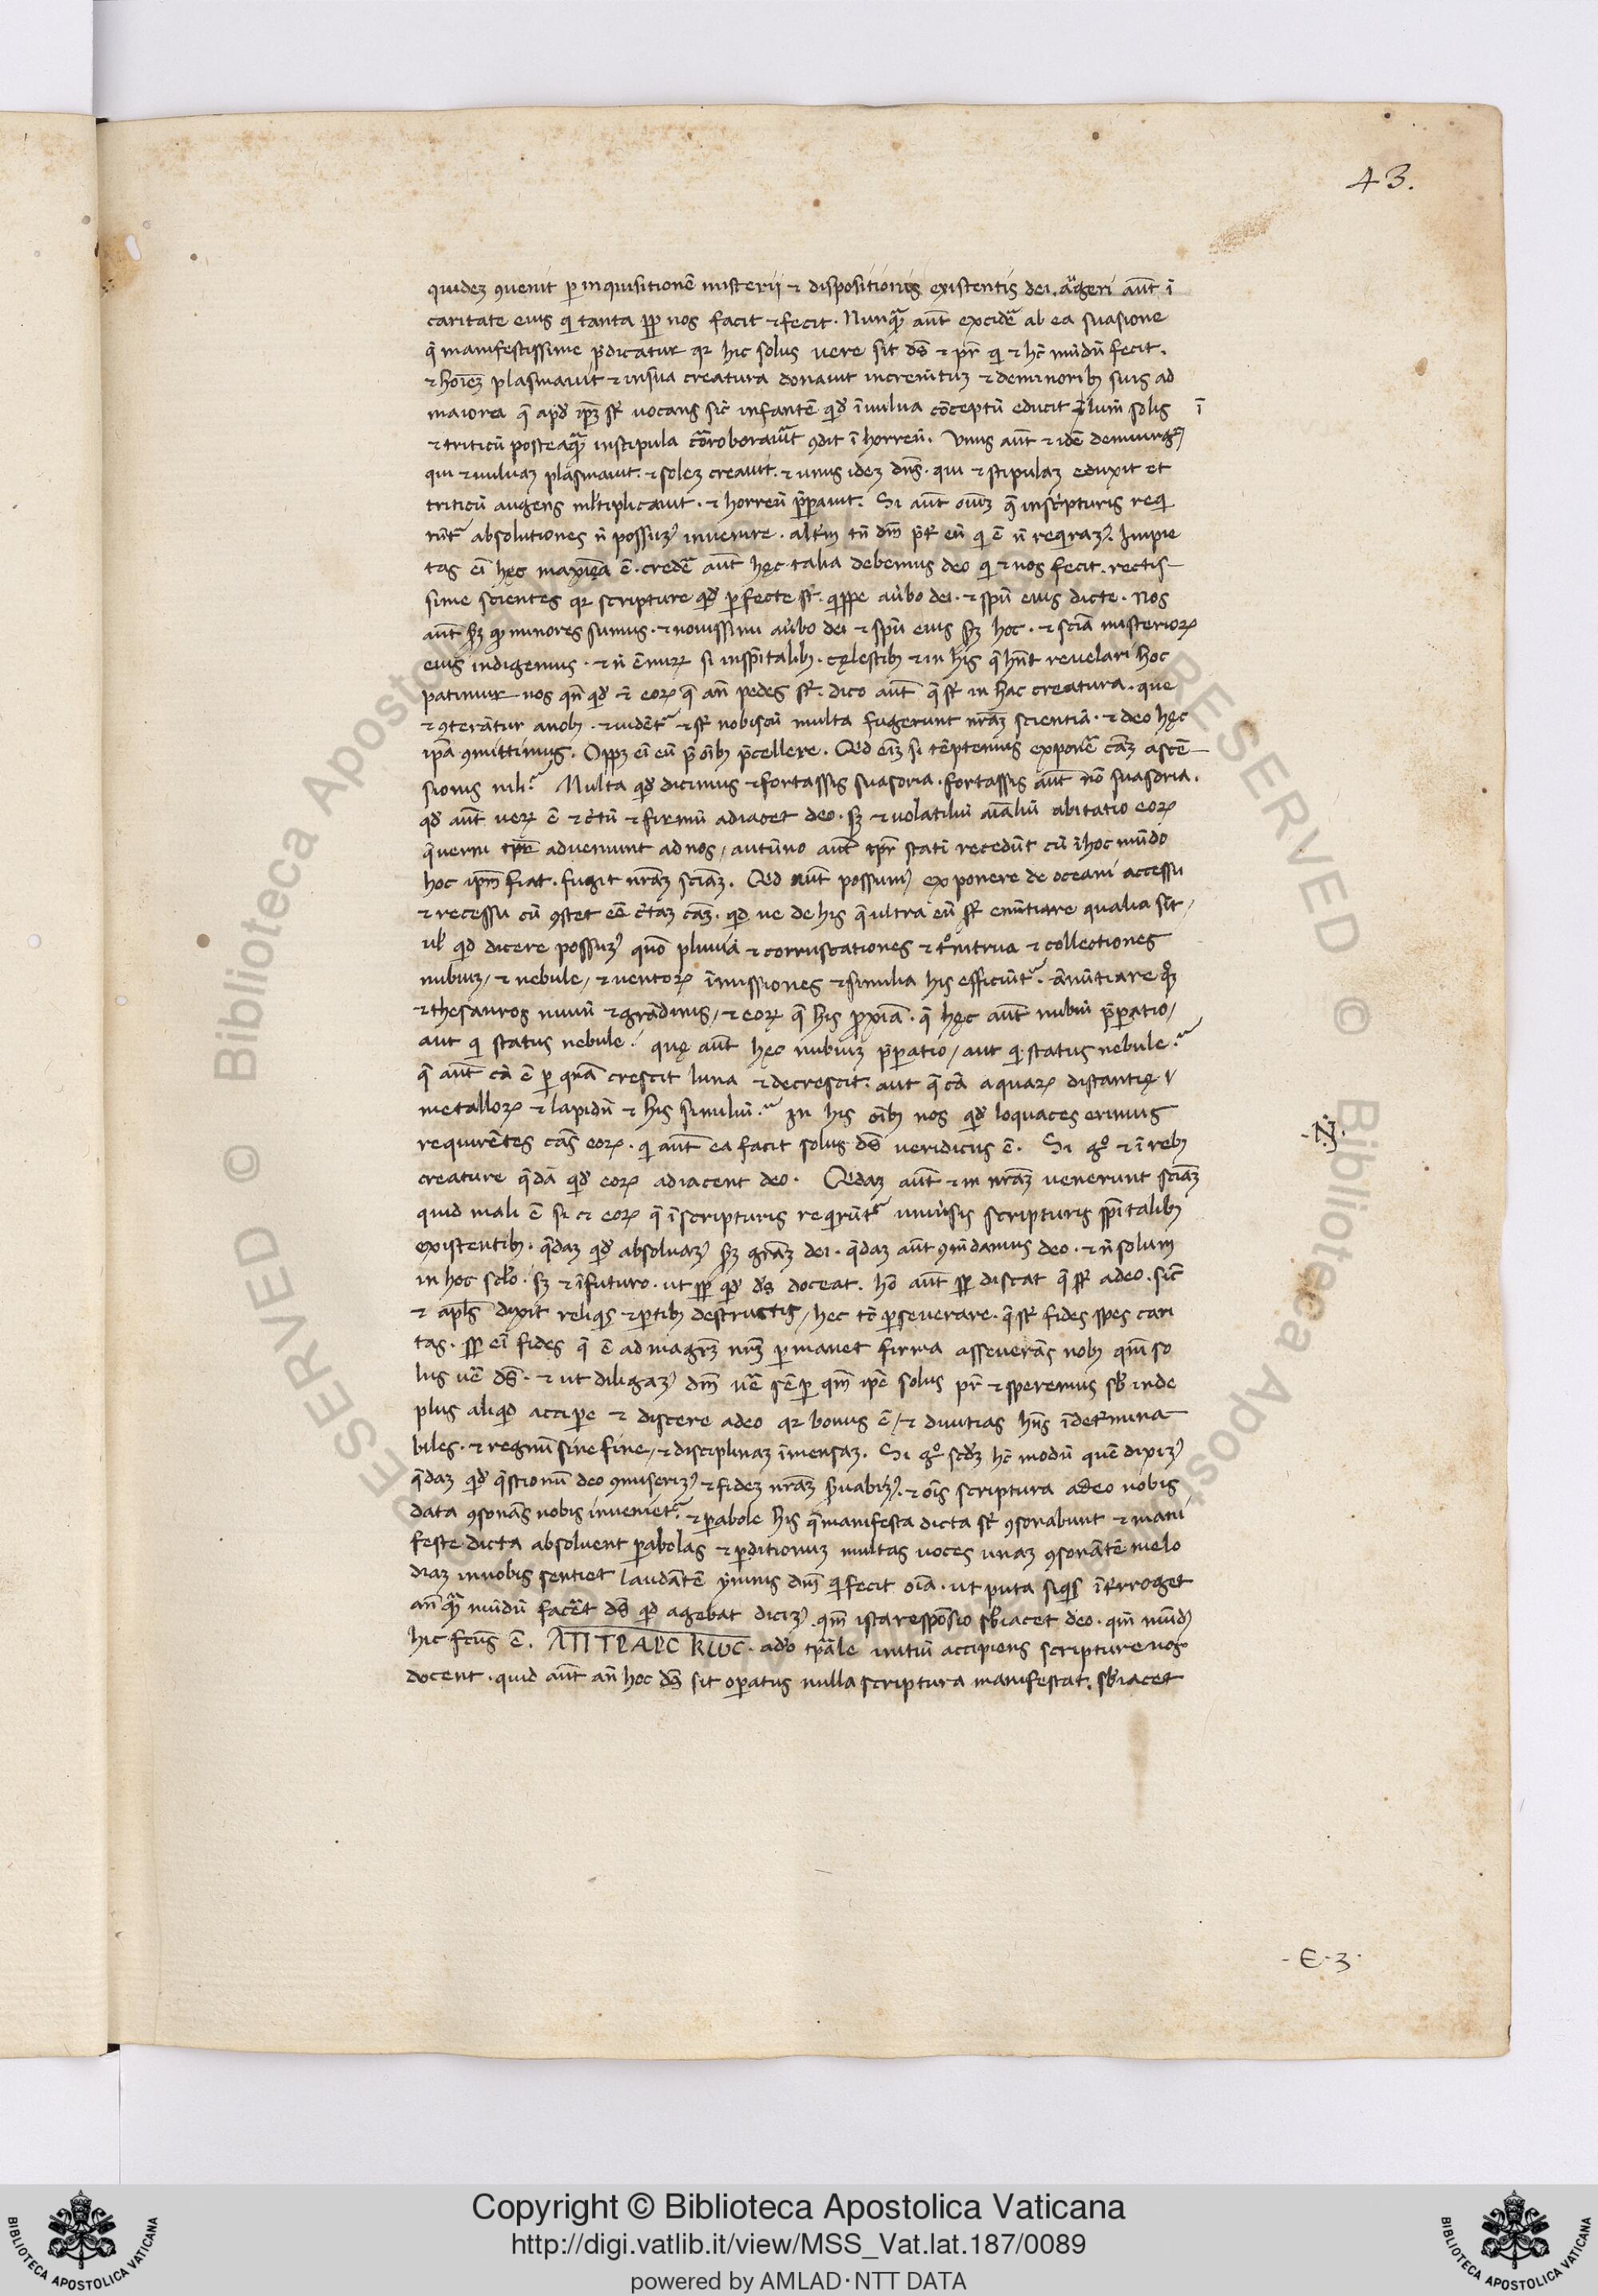 43.
quidez ꝯuenit ꝑ inquisitionē misterii ⁊ dispositionis existentis dei. augeri aūt ī
caritate eius qi tanta ꝓp nos facit ⁊ fecit. Nunqᷓ aūt excidē ab ea suasione
q̄ manifestissime p̄dicatur qꝛ hic solus uere sit ds̄ ⁊ pr̄ qi ⁊ hc̄ mūdū fecit.
⁊ hoīez plasmauit ⁊ insua creatura donauit incremtuz ⁊ deminoribꝫ suis ad
maiora q̄ apd ip̄ꝫ st̄ uocans sic̄ infantē qid̄ īuulua cōceptū educit ī lum̄ solis ī
⁊ triticū posteaqᷓ instipula corroborauīt ꝯdit ī horreū. Vnus aūt ⁊ idē demiurgꝰ
qui ⁊ uuluaz plasmauit. ⁊ solez creauit. ⁊ unus idez dn̄s. qui ⁊ stipulaz eduxit et
triticū augens ml̄tiplicauit. ⁊ horreū p̄parauit. Si aūt oīuz q̄ inscripturis reqi
rūtᷣ absolutiones n̄ possuzꝰ inuenire. alt̄m tn̄ dm̄ p̄t̄ eū qi ē n̄ reqirazꝰ. Impie
tas eī hęc maxīa ē. credē aūt hęc talia debemus deo qi ⁊ nos fecit. rectis
sime scientes qꝛ scripture qid̄ ꝑfecte st̄. qippe aūbo dei. ⁊ spū eius dicte. Nos
aūt sꝫ qd̄ minores sumus. ⁊ nouissimi aūbo dei ⁊ spū eius sꝫ hoc. ⁊ sciā misterioꝝ
eius indigemus. ⁊ n̄ ē miꝝ si inspītalibꝫ. cęlestibꝫ ⁊ in his q̄ hn̄t reuelari hoc
patimur nos qn̄ qid̄ ⁊ eoꝝ q̄ an̄ pedes st̄. dico aūt q̄ st̄ in hac creatura. que
⁊ ꝯterātur anobꝫ. ⁊ uidētᷣ ⁊ st̄ nobiscū multa fugerunt nrāz scientiā. ⁊ deo hęc
ip̄a ꝯmittimus. Opꝫ eī eū p̄ oībꝫ p̄cellere. Qid eīz si tēptemus exponē cāz ascē
sionis nili? Multa qid̄ dicimus ⁊ fortassis suasoria. fortassis aūt nō suasoria.
qd̄ aūt ueꝝ ē ⁊ c̄tū ⁊ firmū adiacet deo. sꝫ ⁊ uolatiliū aīaliū abitatio eoꝝ
q̄ uerni tp̄r̄ adueniunt ad nos / autūno aūt tp̄r̄ statī recedūt cū ī hoc mūdo
hoc ip̄m fiat. fugit nrāz sciāz. Qid aūt possumꝰ exponere de oceani accessu
⁊ recessu cū ꝯstet eē c̄taz cāz. qid ue de his q̄ ultra eū st̄ enūtiare qualia sīt /
ul̄ qid dicere possuzꝰ quō pluuiā ⁊ corruscationes ⁊ tōnitrua ⁊ collectiones
nubiuz / ⁊ nebule / ⁊ uentoꝝ īmissiones ⁊ similia his efficiūtᷣ. ānūtiare qᷓꝫ
⁊ thesauros niuiū ⁊ grādinis / ⁊ eoꝝ q̄ his ꝓxīa. q̄ hęc aūt nubiū p̄paratio /
aut qi status nebule? quę aūt hęc nubiuz p̄paratio / aut qi status nebule?
q̄ aūt cā ē ꝑ quā crescit luna ⁊ decrescit. aut q̄ cā aquaꝝ distantię
metalloꝝ ⁊ lapidū ⁊ his similiū? In his oībꝫ nos qid̄ loquaces erimus
requirētes cās eoꝝ. qi aūt ea facit solus ds̄ ueridicus ē. Si gͦ ⁊ ī rebꝫ
creature q̄dā qid̄ eoꝝ adiacent deo. Qd̄az aūt ⁊ in nrāz uenerunt sciāz
quid mali ē si ⁊ eoꝝ q̄ ī scripturis reqirūtᷣ uniūsis scripturis spītalibꝫ
existentibꝫ. q̄daz qid̄ absoluazꝰ sꝫ grāz dei. q̄daz aūt ꝯm̄damus deo. ⁊ n̄ solum
in hoc sclō. sꝫ ⁊ ī futuro. ut sꝑ qid̄ ds̄ doceat. hō aūt sꝑ discat q̄ st̄ adeo. sic̄
⁊ apl̄s dixit reliqis ⁊ ꝑtibꝫ destructis / hec tc̄ ꝑseuerare. q̄ st̄ fides spes cari
tas. sꝑ eī fides q̄ ē ad magr̄ꝫ nr̄ꝫ ꝑmanet firma asseuerās nobꝫ qm̄ so
lus uē ds̄. ⁊ ut diligazꝰ dm̄ uē sēꝑ qm̄ ip̄e solus pr̄ ⁊ speremus sb̄inde
plus aliqid acciꝑe ⁊ discere adeo qꝛ bonus ē / ⁊ diuitias hn̄s īdet̄mina
biles. ⁊ regnū sine fine / ⁊ disciplinaz īmensaz. Si gͦ scd̄ꝫ hc̄ modū quē dixizꝰ
q̄daz qid̄ q̄stionū deo ꝯmiserizꝰ ⁊ fidez nrāz s̄uabizꝰ. ⁊ oīs scriptura adeo nobis
data ꝯsonās nobis inuenietᷣ. ⁊ ꝑabole his q̄ manifesta dicta st̄ ꝯsonabunt ⁊ mani
feste dicta absoluent ꝑabolas ⁊ ꝑ ditionuz multas uoces unaz ꝯsonātē melo
diaz in nobis sentiet laudātē ymnis dm̄ qi fecit oīa. ut puta siqis īt̄rroget
an̄qᷓ mūdū facēt ds̄ qid agebat dicizꝰ qm̄ ista respōsio sb̄iacet deo. qm̄ mūdꝰ
hic fcūs ē. ΛΠΙΤΕΛΕC ΚωC. ado tp̄āle initiū accipiens scripture nos
docent. quid aūt an̄ hoc ds̄ sit oꝑatus nulla scriptura manifestat. sb̄iacet
-N-
-E·3·
Copyright © Biblioteca Apostolica Vaticana
http://digi.vatlib.it/view/MSS_Vat.lat.187/0089
powered by AMLAD·NTT DATA